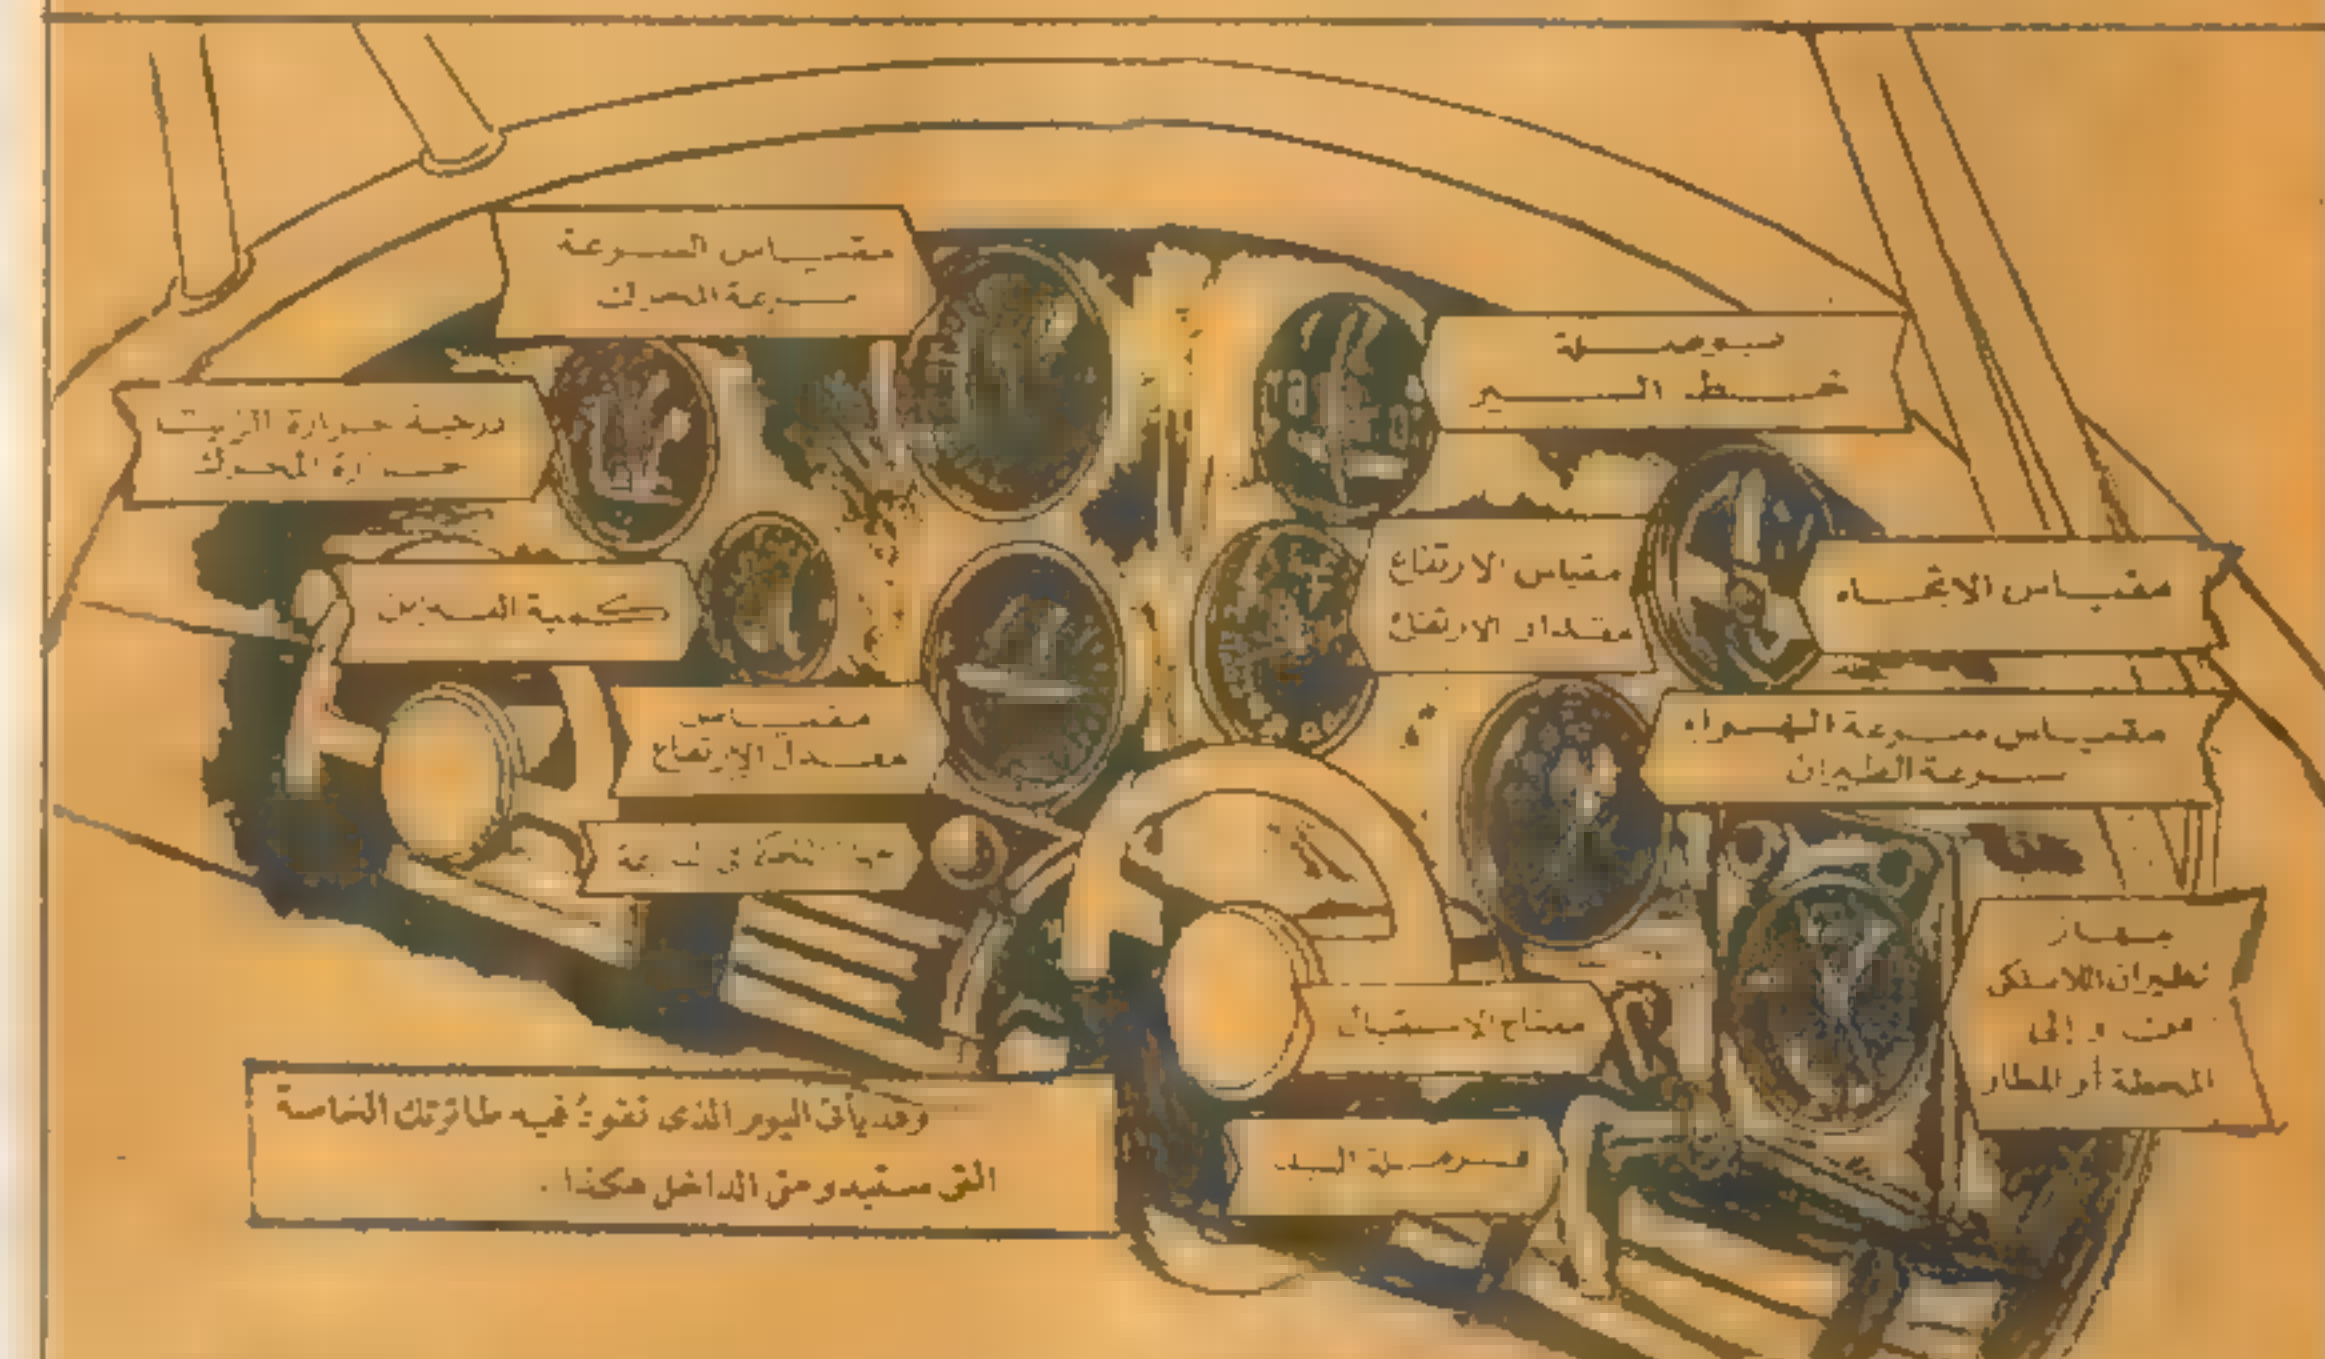 مقياس السرعة
سرعة المحرك
بوصلة
خط السير
درجة حرارة الزيت
حرارة المحرك
مقياس الارتفاع
مقدار الارتفاع
مقياس الاتجاه
كمية البنزين
مقياس
معدل الارتفاع
مقياس سرعة الهواء
سرعة الطيران
جهاز
لطيران اللاسلكى
من و إلى
المحطة أو المطار
مفتاح الاستقبال
وقد يأتى اليوم الذى تقود فيه طائرتك الخاصة
التى ستبدو من الداخل هكذا .